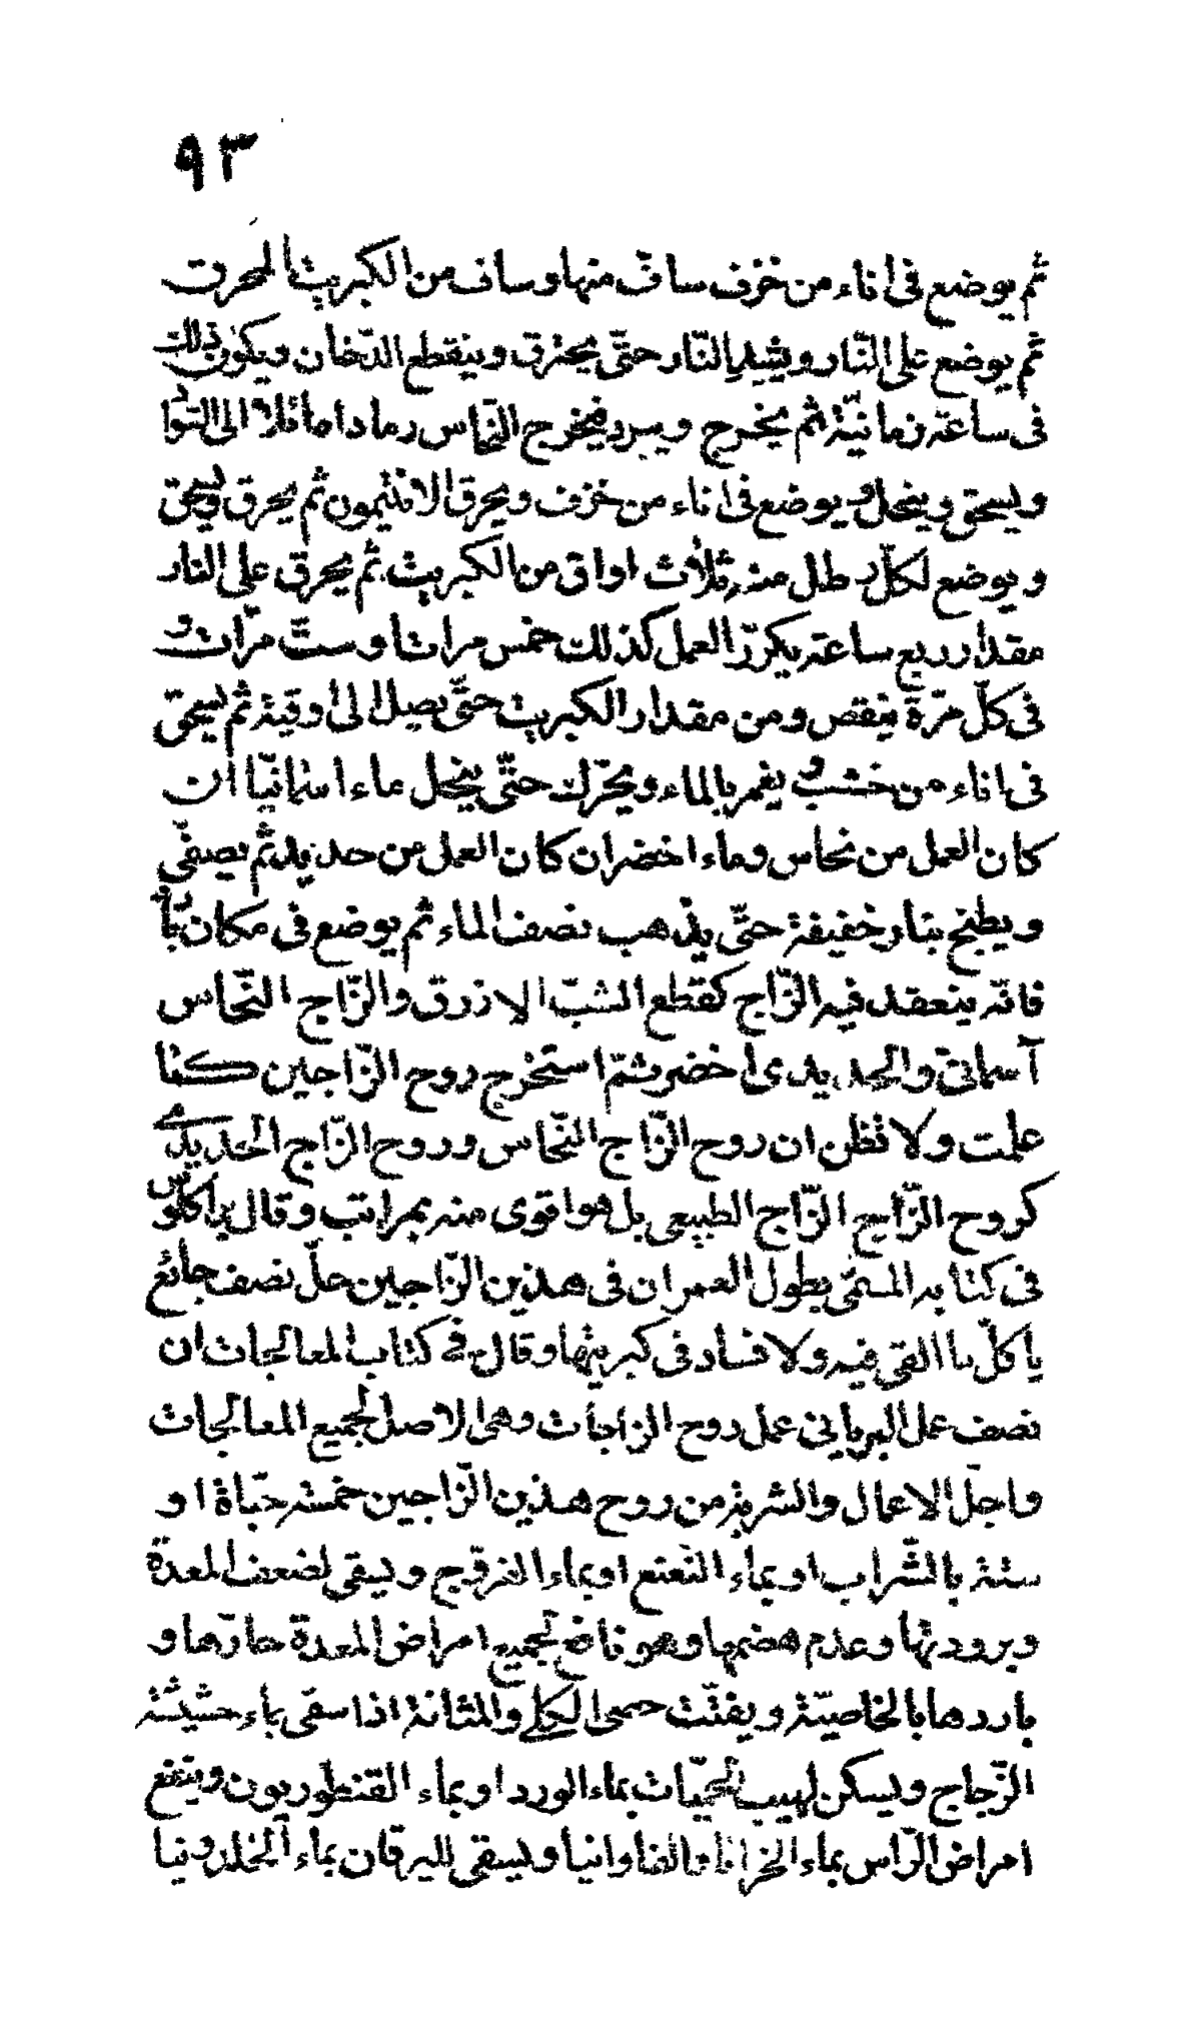 ٩٣
ثم يوضع فى اناء من خزف ساف منها وساف من الكبريت المحرق
ثم يوضع على النّار ويشيد النّار حتّى يحترق وينقطع الدّخان ويكون ذلك
فى ساعة زمانيّة ثم يخرج ويبرد فيخرج النّحاس رمادا مائلا الى السّواد
ويسحق وينخل ويوضع فى اناء من خزف ويحرق الانتيمون ثم يحرق ويسحق
ويوضع لكلّ رطل منه ثلاث اواق من الكبريت ثم يحرق على النار
مقدار ربع ساعة يكرّر العمل كذلك خمس مرات او ستّ مرّات و
فى كلّ مرّة ينقص ومن مقدار الكبريت حتّى يصل الى اوقية ثم يسحق
فى اناء من خشب و يغمر بالماء ويحرّك حتّى ينحل ماء اسمانيّا ان
كان العمل من نحاس وماء اخضر ان كان العمل من حديد ثم يصفّى
ويطبخ بنار خفيفة حتّى يذهب نصف الماء ثم يوضع فى مكان بارد
فانّه ينعقد فيه الزّاج كقطع الشبّ الازرق والزّاج النّحاس
آسمانى والحديدى اخضر ثمّ استخرج روح الزّاجين كما
علمت ولا تظن ان روح الزّاج النّحاس وروح الزّاج الحديدى
كروح الزّاج الزّاج الطبيعى بل هو اقوى منه بمراتب وقال براكلوس
فى كتابه المسمّى بطول العمر ان فى هذين الزّاجين حلّ نصف جائع
ياكلّ ما القى فيه ولا فساد فى كبريتها وقال فى كتاب المعالجات ان
نصف عمل البريانى عمل روح الزاجات وهى الاصل لجميع المعالجات
واجلّ الاعمال والشربة من روح هذين الزّاجين خمسة حبّاة او
ستة بالشّراب او بماء النّعنع او بماء الفروج ويسقى لضعف المعدة
وبرودتها وعدم هضمها وهو نافع لجميع امراض المعدة حارّها و
باردها بالخاصيّة ويفتّت حصى الكلى والمثانة اذا سقى بماء حشيشة
الزّجاج ويسكن لهيب الحمّيات بماء الورد او بماء القنطوريون وينفع
امراض الرّاس بماء الخزاما والفاوانيا ويسقى لليرقان بماء الخلدونيا